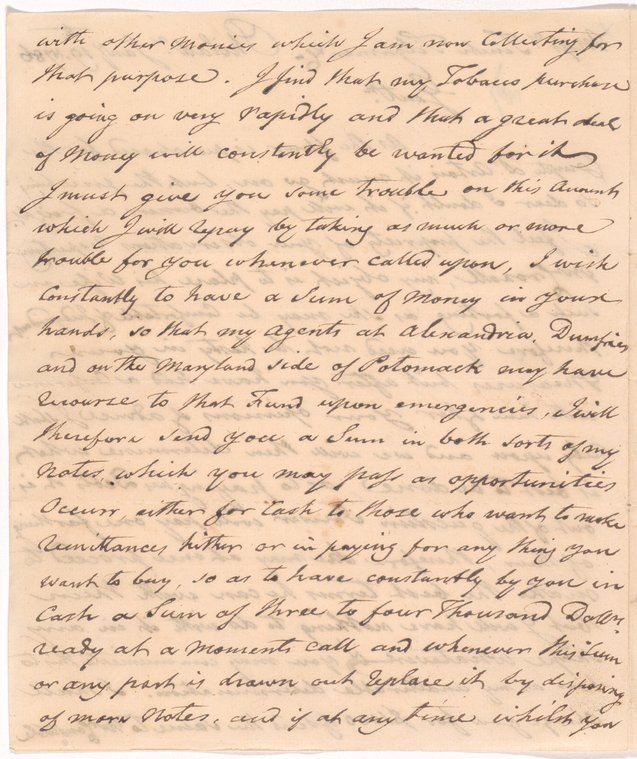 with other monies which I am now Collecting for
that purpose. I find that my Tobacco purchase
is going on very rapidly and that a great deal
of Money will constantly be wanted for it
I must give you some trouble on this Account
which I will repay by taking as much or more
trouble for you whenever called upon, I wish
Constantly to have a Sum of Money in your
hands, so that my Agents at Alexandria, Dumfries
and on the Maryland side of Potomack may have
recourse to that Fund upon emergencies, I will
therefore send you a Sum in both sorts of my
Notes, which you may pass as opportunities
Occurr either for Cash to those who want to make
remittances hither or in paying for any thing you
want to buy, so as to have constantly by you in
Cash a Sum of three to four Thousand Dollrs
ready at a moments call and whenever this Sum
or any part is drawn out replace it by disposing
of more Notes, and if at any time whilst you